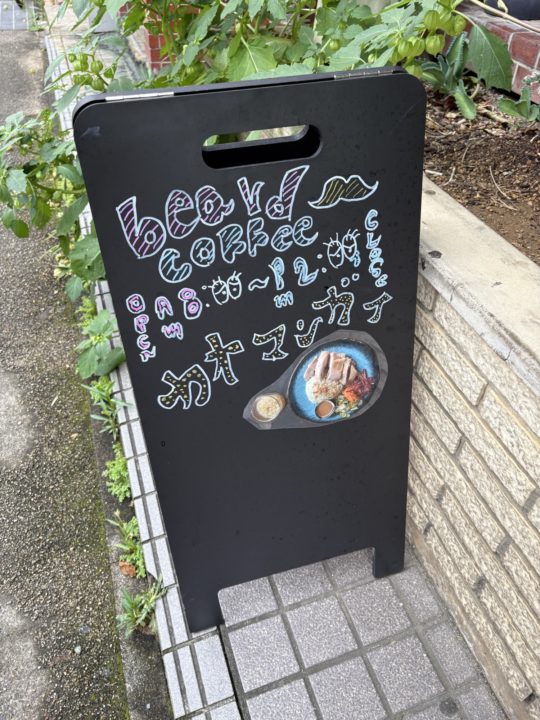 beard
COFFEE
OPEN AM 8:00~PM 2:00 CLOSE
カオマンガイ